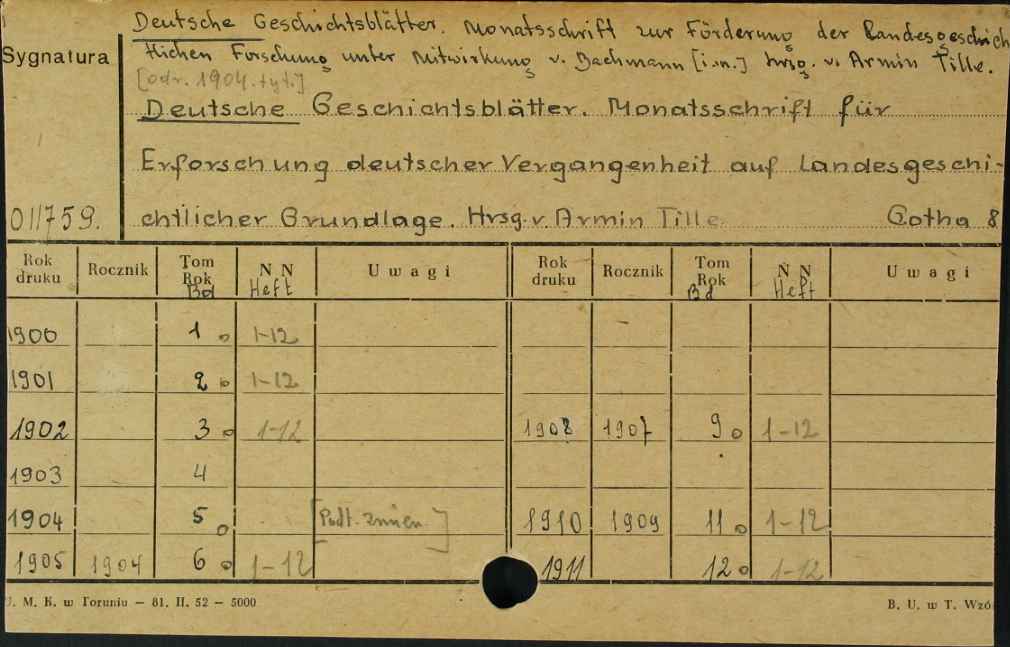 Deutsche Geschichtsblätter. Monatsschrift zur Förderung der Landesgeschich
tlichen Forschung unter Mitwirkung v. Bachmann [i.in.] hrsg. v. Armin Tille.
Sygnatura
[odr. 1904. tyt.]
Deutsche Geschichtsblätter. Monatsschrift für
Erforschung deutscher Vergangenheit auf Landesgeschi-
011759. chtlicher Grundlage. Hrsg. v. Armin Tille. Gotha 8
Rok druku Rocznik Tom Rok Bd NN Heft Uwagi Rok druku Rocznik Tom Rok Bd NN Heft Uwagi
1900 1 1-12
1901 2 1-12
1902 3 1-12 1908 1907 9 1-12
1903 4
1904 5 [Podt. zmien.] 1910 1909 11 1-12
1905 1904 6 1-12 1911 12 1-12
U. M. K. w Toruniu — 81. II. 52 — 5000 B. U. w T. Wzó